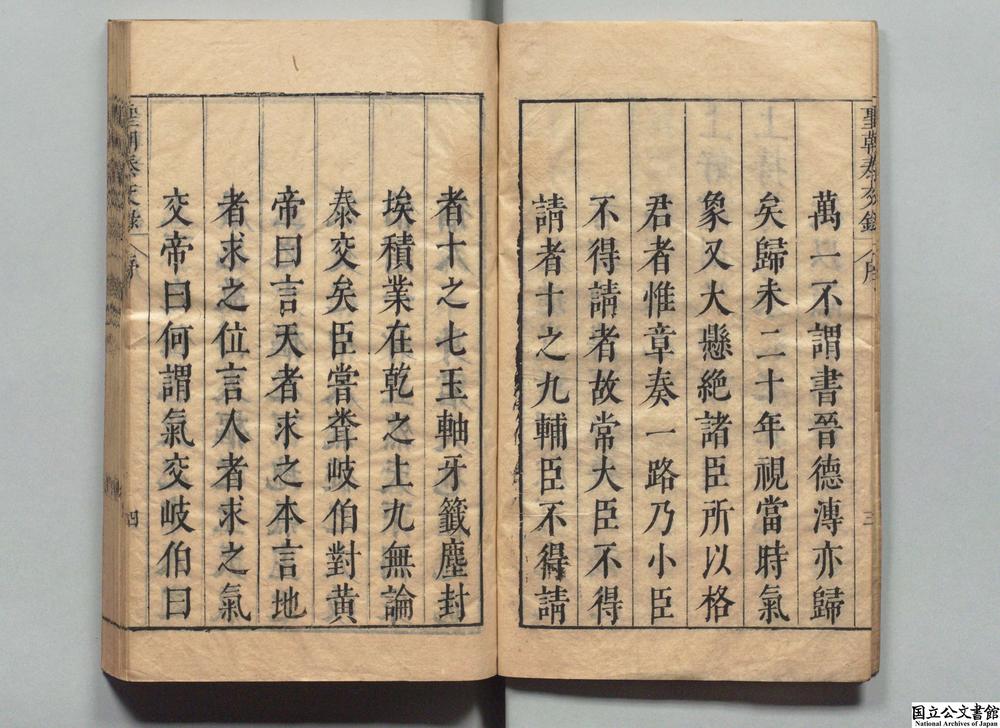 聖朝泰交錄 序 三
萬一不謂書晉德溥亦歸
矣歸未二十年視當時氣
象又大懸絶諸臣所以格
君者惟章奏一路乃小臣
不得請者故常大臣不得
請者十之九輔臣不得請
者十之七玉軸牙籤塵封
埃積業在乾之上九無論
泰交矣臣嘗聾岐伯對黃
帝曰言天者求之本言地
者求之位言人者求之氣
交帝曰何謂氣交岐伯曰
聖朝泰交錄 序 四
国立公文書館
National Archives of Japan